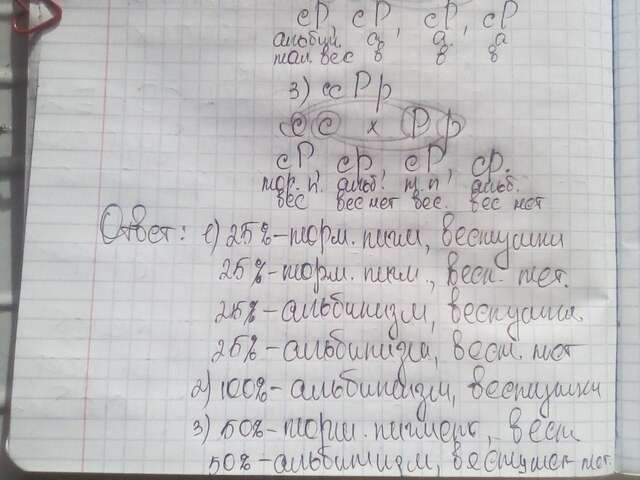 cP, cP, cP, cP
альбин. а. а. а
нал. вес в в в
3) ccPp
c c x P p
cP, cp, cP, cp.
нор. п. альб. н. п. альб.
вес вес нет вес. вес нет
Ответ: 1) 25% - норм. пигм, веснушки
25% - норм. пигм., весн. нет.
25% - альбинизм, веснушки.
25% - альбинизм, весн. нет
2) 100% - альбинизм, веснушки
3) 50% - норм. пигмент, весн.
50% - альбинизм, веснушек нет.